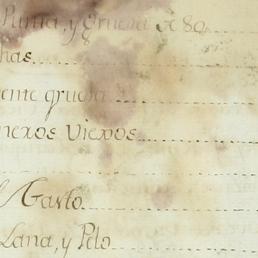 Punta, y Gruesa
has
ente gruesa
neros Viexos
Gasto
Lana, y Pelo